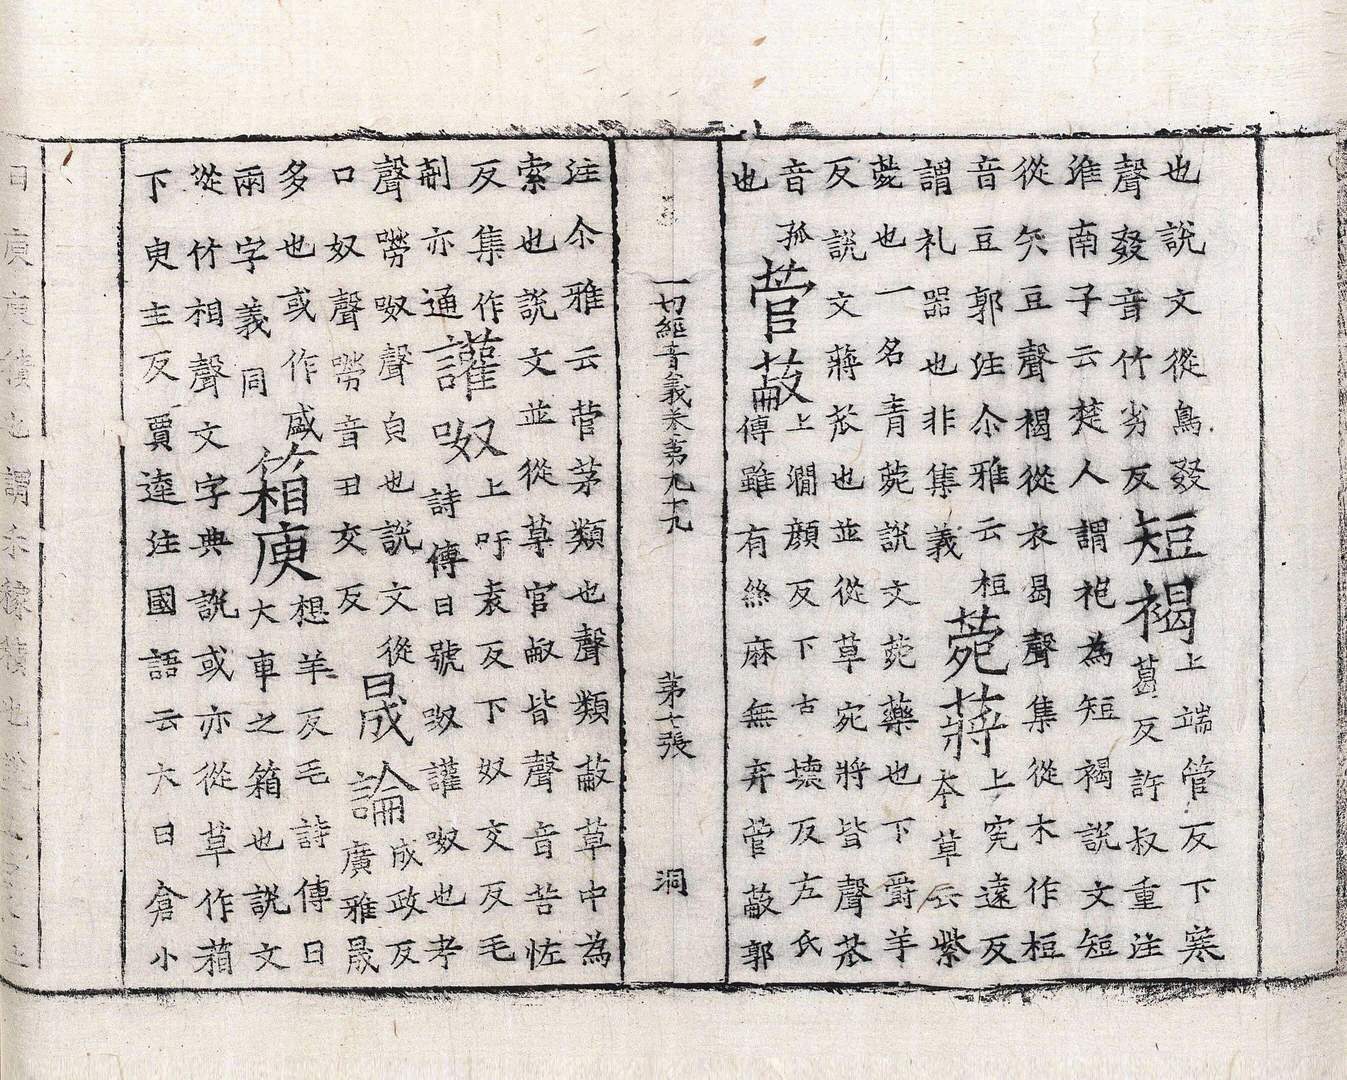 也說文從鳥叕
聲叕音竹劣反
短褐
上端管反下寒
葛反許叔重注
淮南子云楚人謂袍為短褐說文短
從矢豆聲褐從衣曷聲集從木作桓
音豆郭注尒雅云桓
謂礼器也非集義
菀蔣
上宛遠反
本草云紫
菀也一名青菀說文菀藥也下爵羊
反說文蔣苽也並從草宛將皆聲苽
音孤
也
菅蒯
上澗顔反下古壞反左氏
傳雖有絲麻無弃菅蒯郭
一切經音義卷第九十九 第七張 洞
注尒雅云菅茅類也聲類蒯草中為
索也說文並從草官㕟皆聲音苦怪
反集作
㓸亦通
讙呶
上吁袁反下奴交反毛
詩傳曰號呶讙呶也考
聲嘮呶聲皃也說文從
口奴聲嘮音丑交反
晟論
成政反
廣雅晟
多也或作盛
兩字義同
箱庾
想羊反毛詩傳曰
大車之箱也說文
從竹相聲文字典說或亦從草作葙
下臾主反賈逵注國語云大曰倉小
曰庾庾積也謂禾稼積也